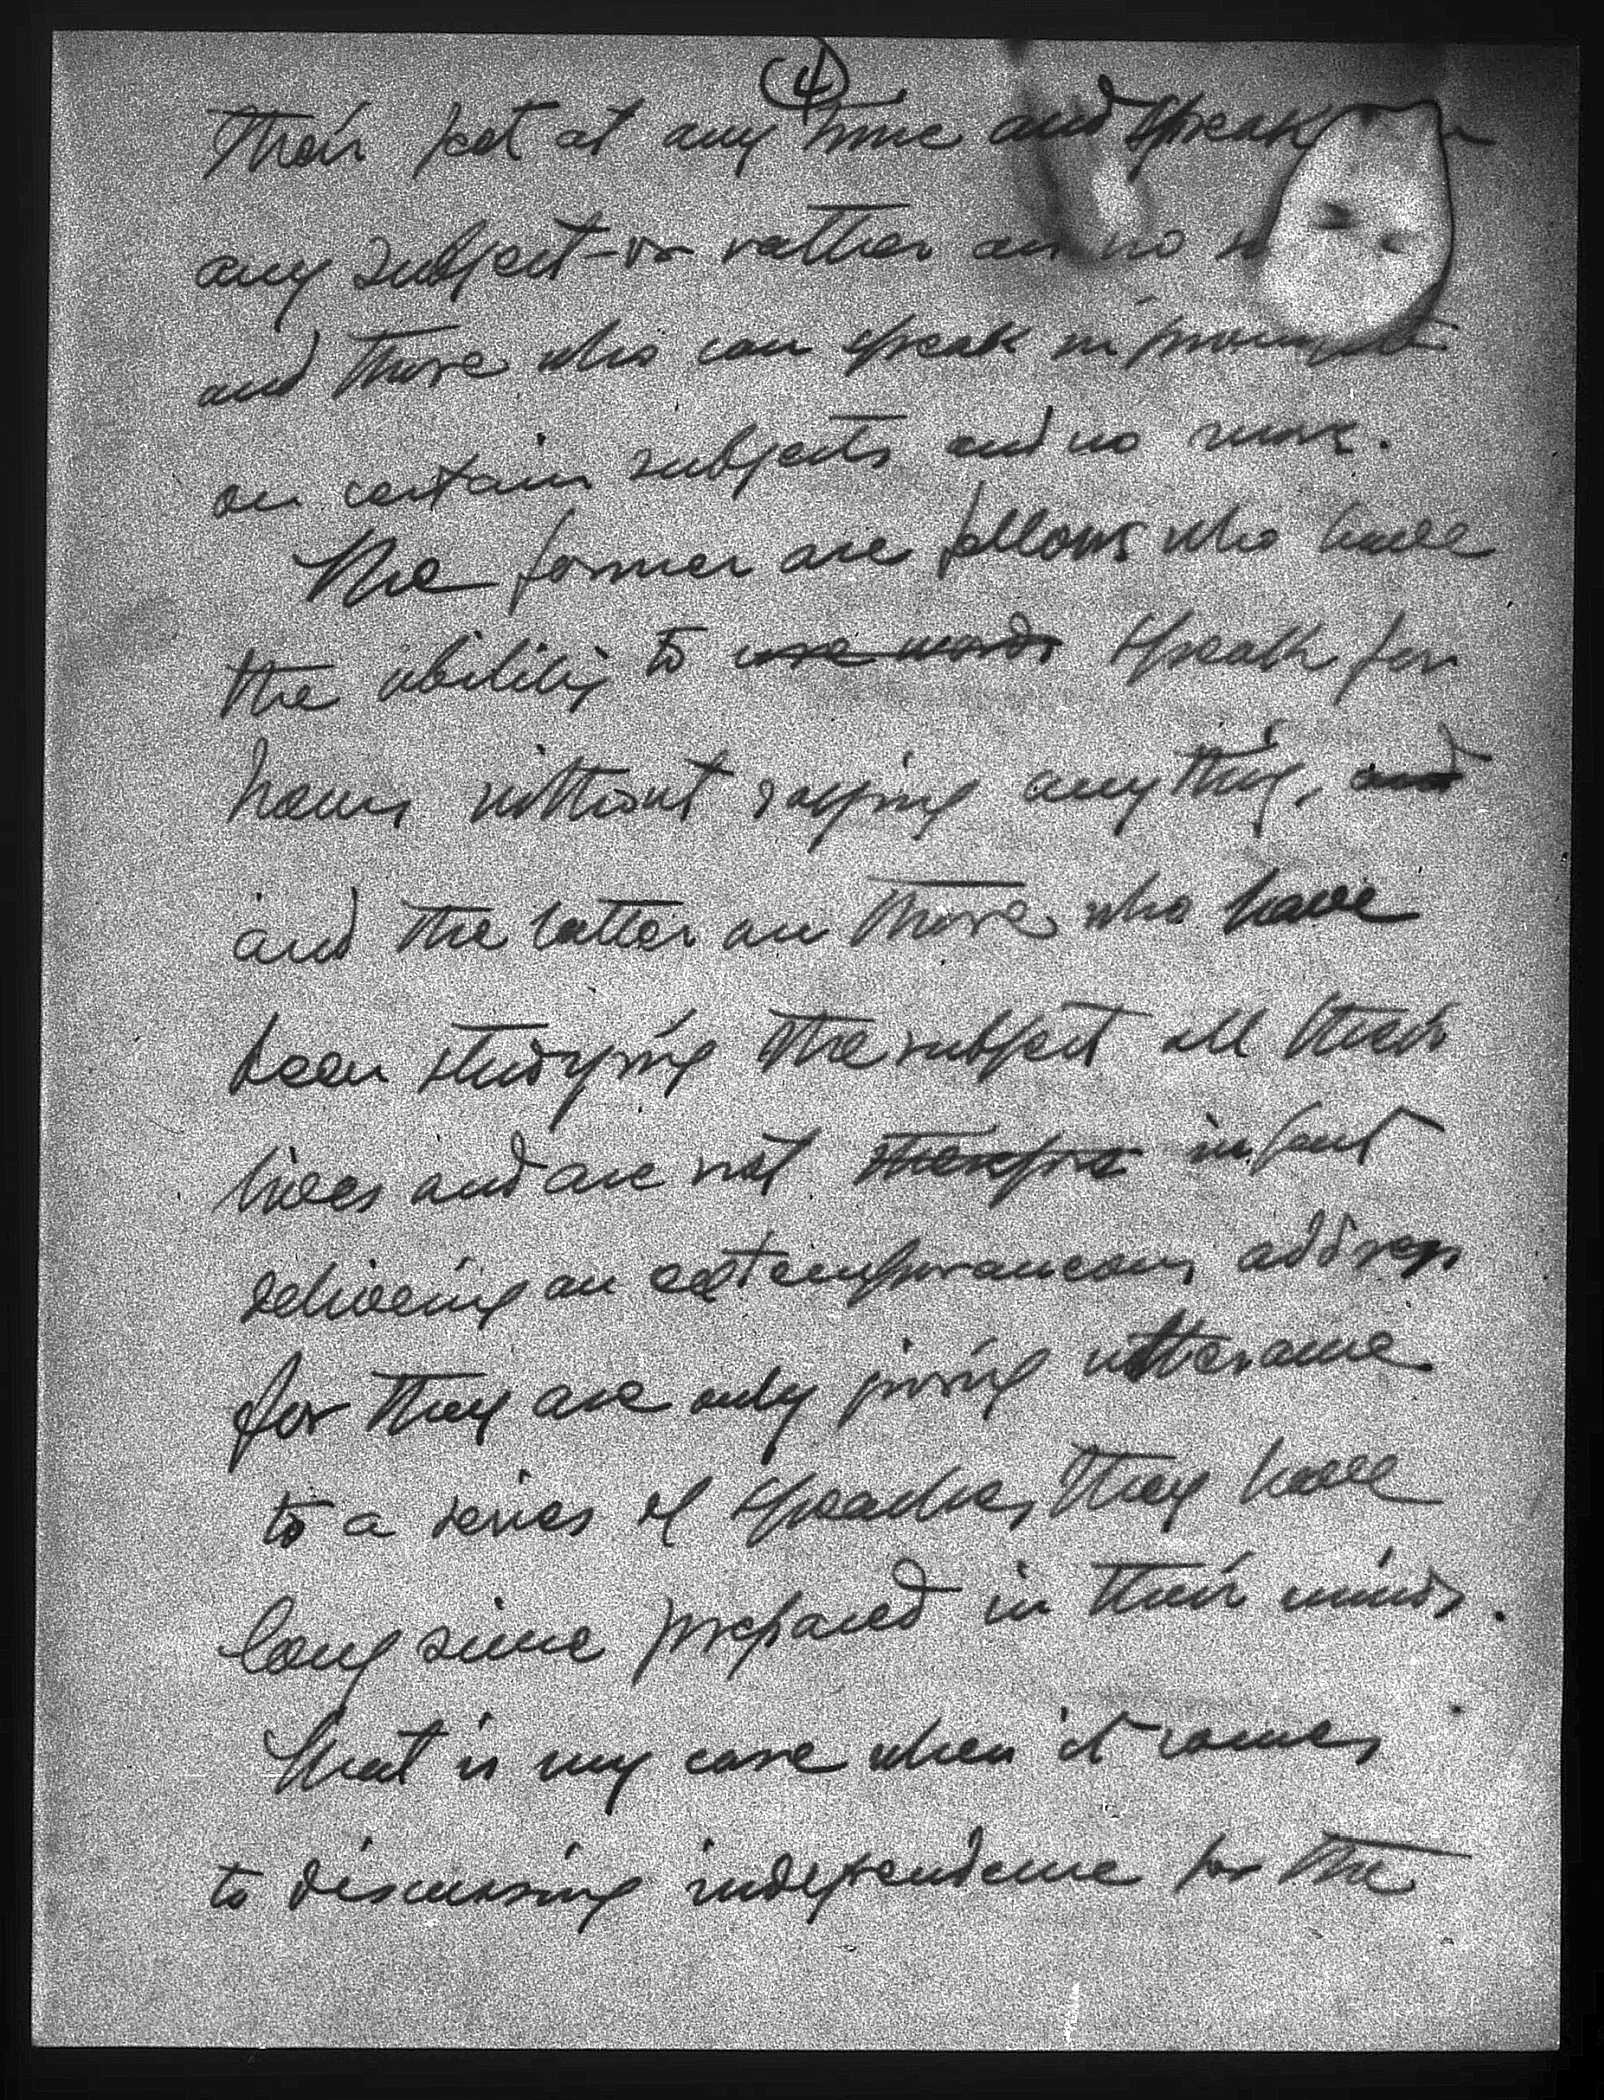 4
their feet at any time and speak
any subject – or rather on no
and those who can speak impromptu
on certain subjects and no more.
The former are fellows who have
the ability to use words speak for
hours without saying anything, and
and the latter are those who have
been studying the subject all their
lives and are not therefore in fact
delivering an extemporaneous address
for they are only giving utterance
to a series of speeches they have
long since prepared in their minds.
That is my case when it comes
to discussing independence for the